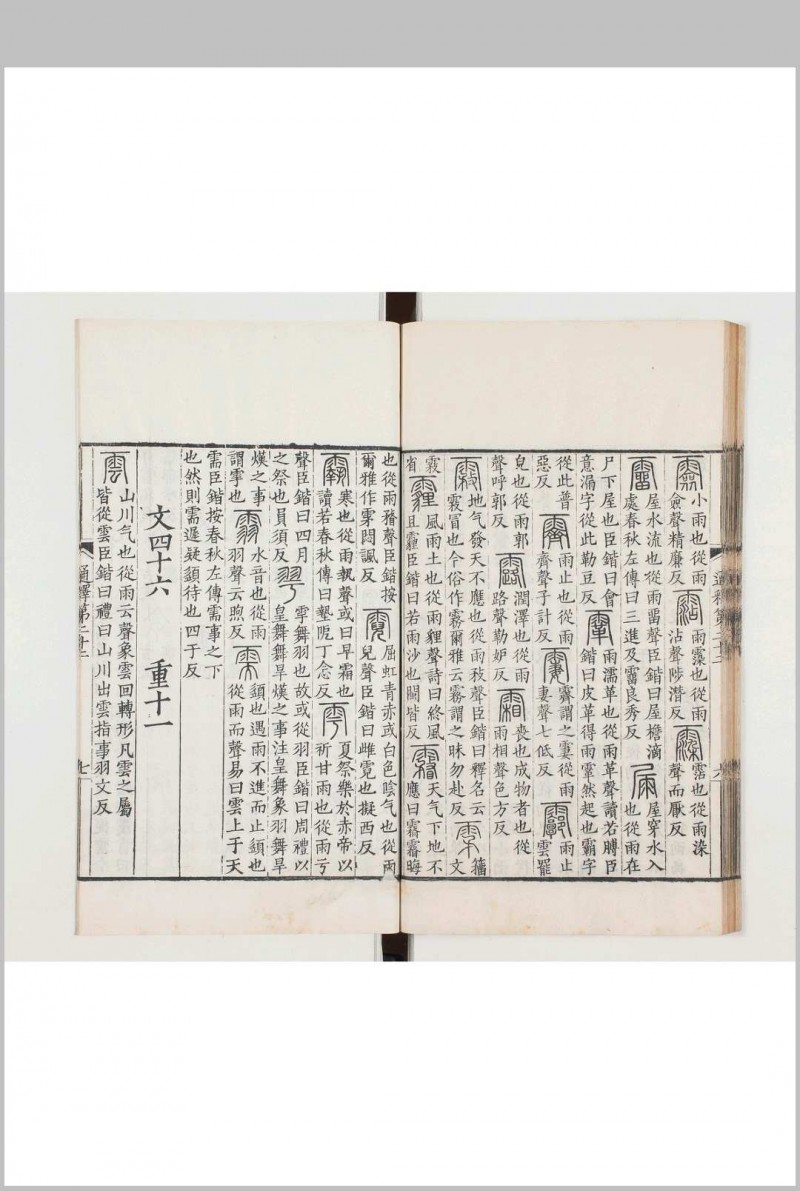 霒
小雨也從雨
僉聲精廉反
霑
雨𩆷也從雨
沾聲陟潛反
𩆷
霑也從雨染
聲而厭反
霤
屋水流也從雨畱聲臣鍇曰屋檐滴
處春秋左傳曰三進及霤良秀反
屚
屋穿水入
也從雨在
尸下屋也臣鍇曰會
意漏字從此勒豆反
䨣
雨濡革也從雨革聲讀若膊臣
鍇曰皮革得雨䨣然起也霸字
從此普
惡反
霽
雨止也從雨
齊聲子計反
霋
霽謂之霋從雨
妻聲七低反
霩
雨止
雲罷
皃也從雨郭
聲呼郭反
露
潤澤也從雨
路聲勒妒反
霜
喪也成物者也從
雨相聲色方反
霚
地气發天不應也從雨敄聲臣鍇曰釋名云
霚冒也今俗作霧爾雅云霧謂之昧勿赴反
籀
文
霚
省
霾
風雨土也從雨貍聲詩曰終風
且霾臣鍇曰若雨沙也閪皆反
霿
天气下地不
應曰霿霿晦
通釋第二十二
六
也從雨瞀聲臣鍇按
爾雅作雺悶諷反
霓
屈虹青赤或白色陰气也從雨
兒聲臣鍇曰雌霓也擬西反
𩆝
寒也從雨執聲或曰早霜也
讀若春秋傳曰墊阨丁念反
雩
夏祭樂於赤帝以
祈甘雨也從雨亏
聲臣鍇曰四月
之祭也員須反
𦏻
雩舞羽也故或從羽臣鍇曰周禮以
皇舞舞旱熯之事注皇舞象羽舞旱
熯之事
謂雩也
䨒
水音也從雨
羽聲云煦反
需
䇓也遇雨不進而止䇓也
從雨而聲易曰雲上于天
需臣鍇按春秋左傳需事之下
也然則需遲疑䇓待也四于反
文四十六
重十一
雲
山川气也從雨云聲象雲回轉形凡雲之屬
皆從雲臣鍇曰禮曰山川出雲指事羽文反
通釋第二十二
七